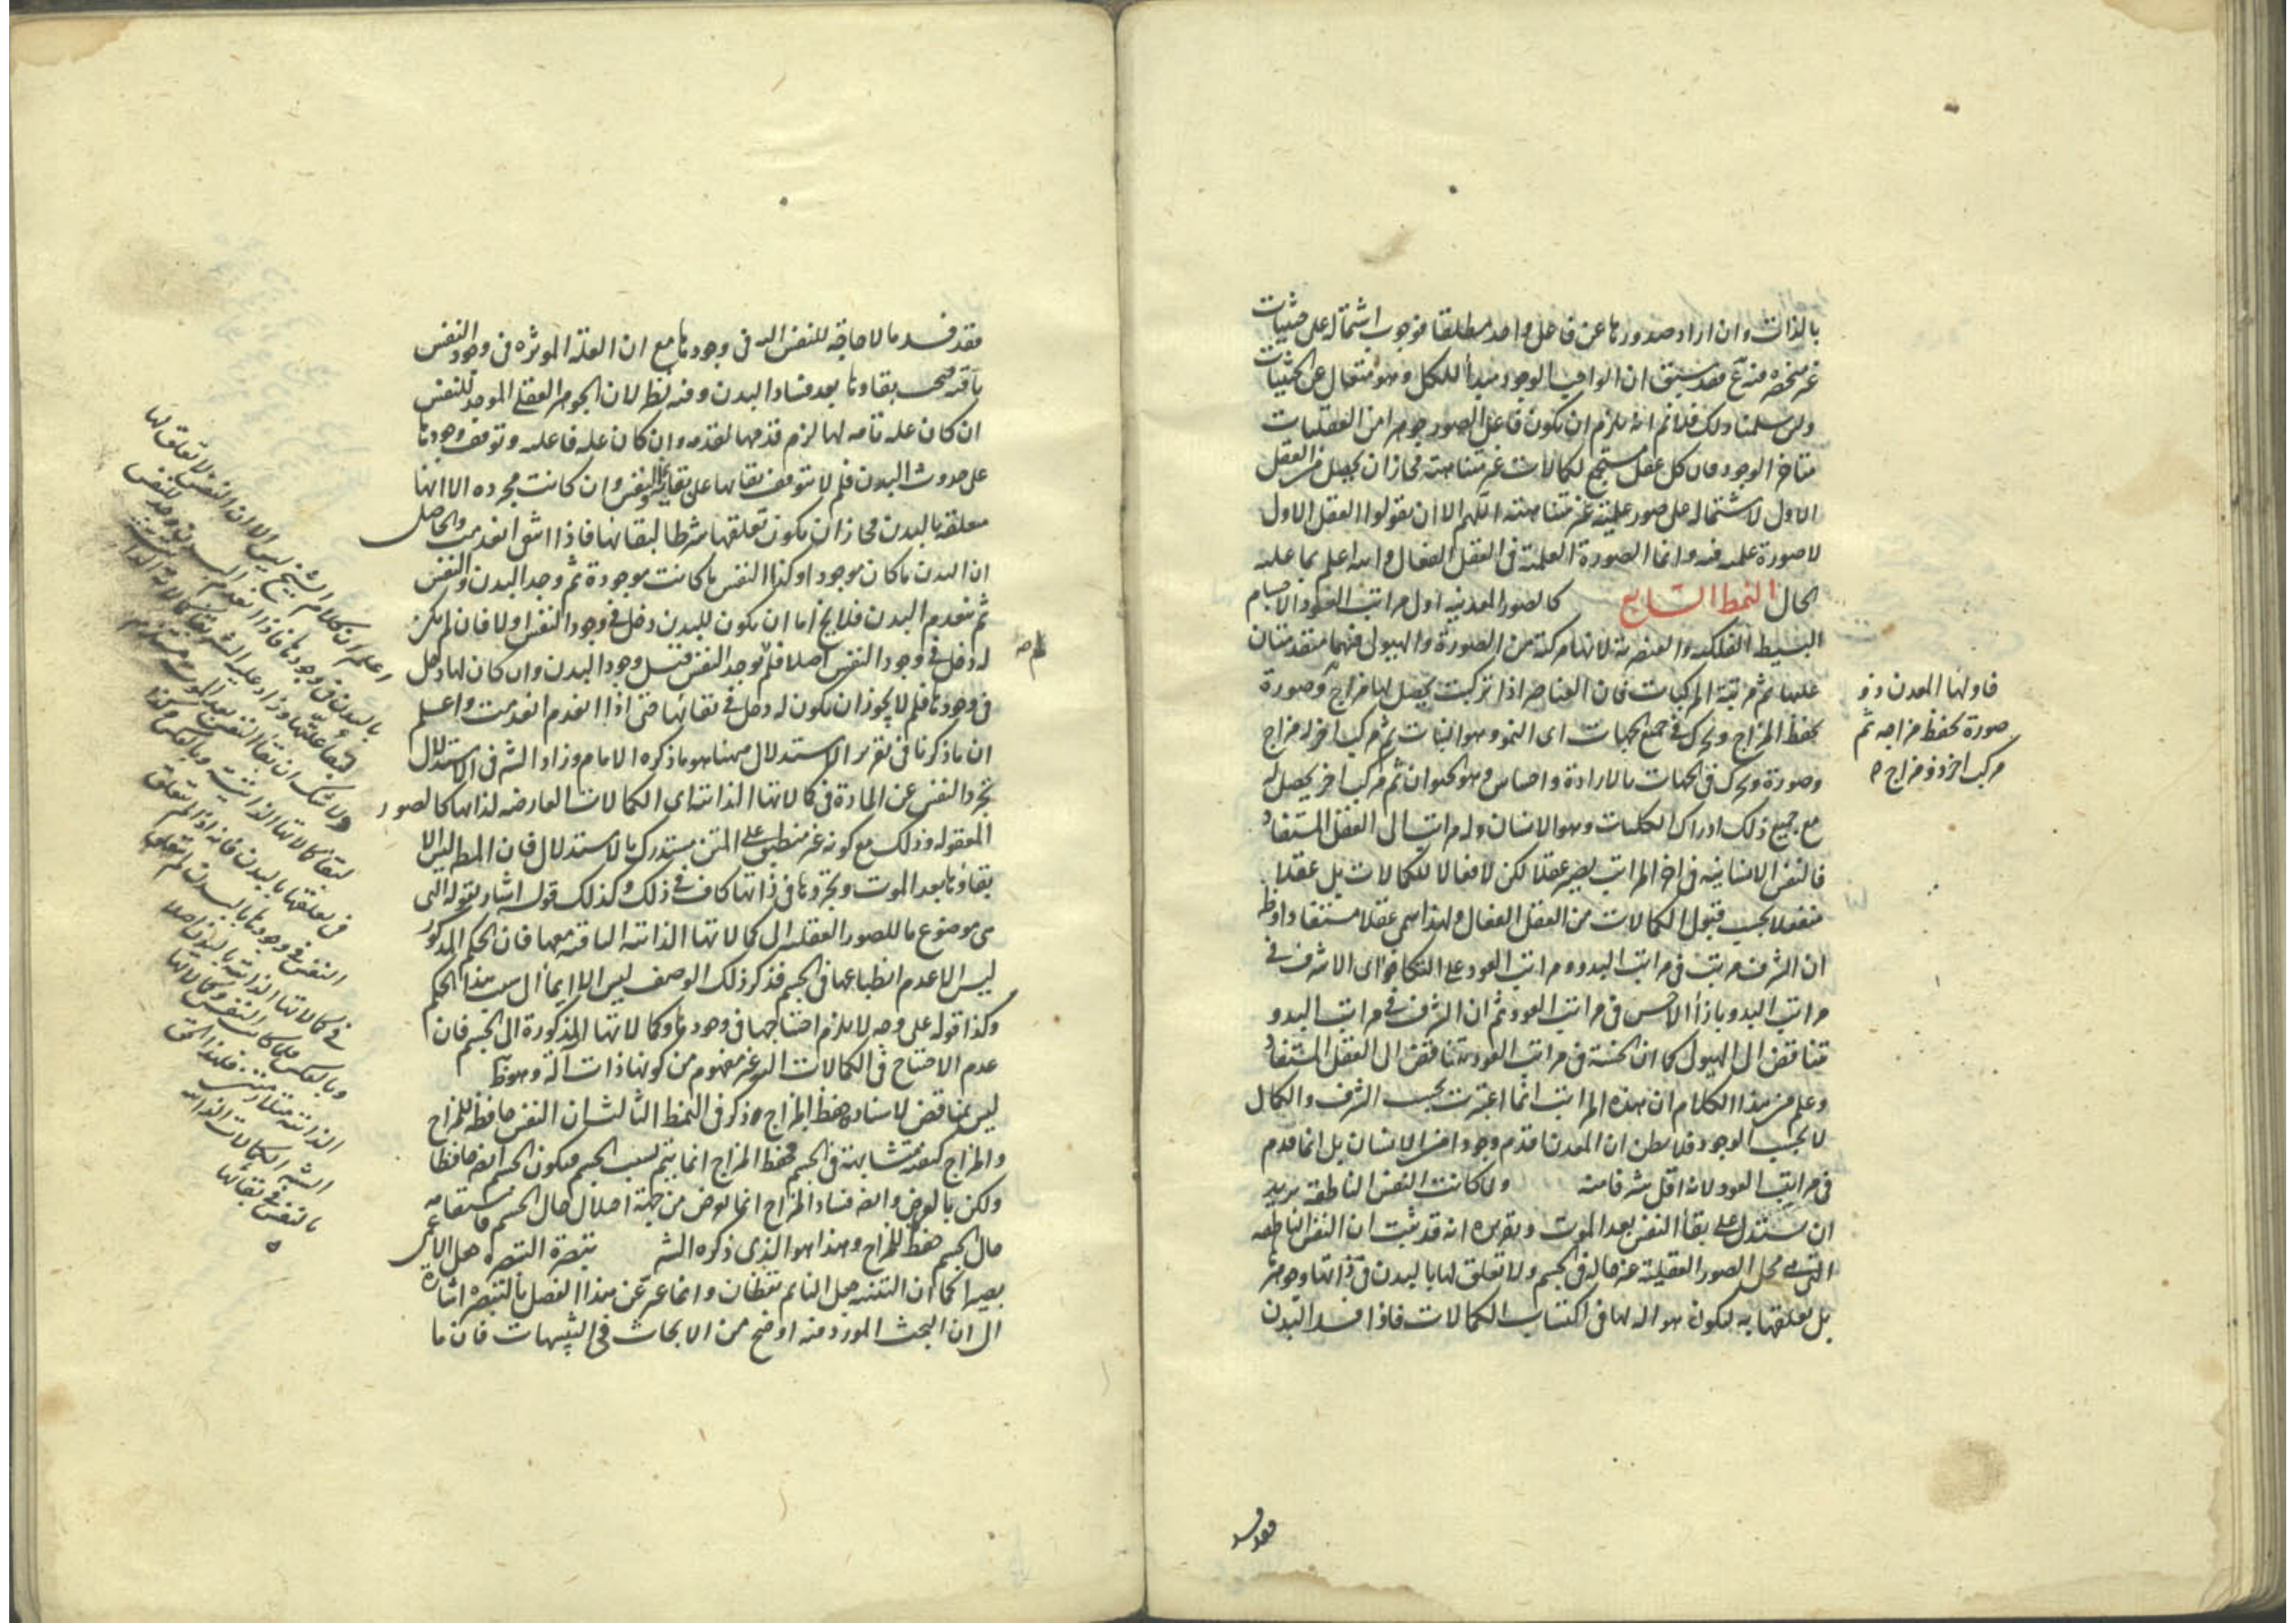 بالذات وان اراد صدورها عن فاعل واحد مطلقا فوجوب اشتماله على حيثيات
غير منحصره فيه مم فقد سبق ان الواجب الوجود مبدأ للكل وهو متعال عن الحيثيات
ولئن سلمنا ذلك فلانم انه يلزم ان يكون فاعل الصور جوهرا من العقليات
متاخر الوجود فان كل عقل مستجمع لكمالات غير متناهية فجاز ان يحصل من العقل
الاول لاشتماله على صور علمية غير متناهية اللهم الا ان يقولوا العقل الاول
لا صورة علمية فيه وانما الصورة العلمية فى العقل الفعال والله اعلم بما عليه
الحال النمط السابع كالصور المعدنيه اول مراتب العود الاجسام
البسيطة الفلكية والعنصرية لانها مركبة من الصورة والهيولى فهما متقدمتان
عليها ثم مرتبة المركبات فان العناصر اذا تركبت يحصل لها مزاج وصورة
يحفظ المزاج ويحرك فى جميع الجهات اى النمو وهو النبات ثم مركب اخر له مزاج
وصورة ويحرك فى الجهات بالارادة واحساس وهو الحيوان ثم مركب اخر يحصل له
مع جميع ذلك ادراك الكليات وهو الانسان وله مراتب الى العقل المستفاد
فالنفس الانسانية فى اخر المراتب يصير عقلا لكن لا فعالا للكمالات بل عقلا
منفعلا بحسب قبول الكمالات من العقل الفعال ولهذا سمى عقلا مستفادا وظ
ان الشرف مرتب فى مراتب البدو ومراتب العود على التكافؤ اى الاشرف فى
مراتب البدو بازأ الاخس فى مراتب العود ثم ان الشرف فى مراتب البدو
تتناقص الى الهيولى كما ان الخسة فى مراتب العود تتناقص الى العقل المستفاد
وعلم من هذا الكلام ان هذه المراتب انما اعتبرت بحسب الشرف والكمال
لا بحسب الوجود فلا يظن ان المعدن اقدم وجودا من الانسان بل انما قدم
فى مراتب العود لانه اقل شرفا منه ولما كانت النفس الناطقة يريد
ان يستدل على بقأ النفس بعد الموت وتقريره انه قد ثبت ان النفس الناطقه
التى هى محل الصور العقلية غير حالة فى جسم ولا تعلق لها بالبدن فى ذاتها وجوهرها
بل تعلقها به ليكون هو الة لها فى اكتساب الكمالات فاذا فسد البدن
فاولها المعدن ذو
صورة يحفظ مزاجه ثم
مركب اخر ذو مزاج
فقد فسد
فقد فسد ما لا حاجة للنفس اليه فى وجودها مع ان العلة الموثره فى وجود النفس
باقية فيجب بقاوها بعد فساد البدن وفيه نظر لان الجوهر العقلى الموجد للنفس
ان كان علة تامه لها لزم قدمها لقدمه وان كان علة فاعلية وتوقف وجودها
على حدوث البدن فلم لا يتوقف بقاها على بقائه والنفس وان كانت مجرده الا انها
متعلقة بالبدن فجاز ان يكون تعلقها شرطا لبقائها فاذا انتفى انعدمت والحاصل
ان البدن ما كان موجودا وكذا النفس ما كانت موجودة ثم وجد البدن والنفس
ثم ينعدم البدن فلا يخ اما ان يكون للبدن دخل فى وجود النفس او لا فان لم يكن
له دخل فى وجود النفس اصلا فلم لم يوجد النفس قبل وجود البدن وان كان لها دخل
فى وجودها فلم لا يجوز ان يكون له دخل فى بقائها حتى اذا انعدم انعدمت واعلم
ان ما ذكرنا فى تقرير الاستدلال ههنا هو ما ذكره الامام وزاد الشه فى الاستدلال
تجرد النفس عن المادة فى كمالاتها الذاتية اى الكمالات العارضة لذاتها كالصور
المعقوله وذلك مع كونه غير منطبق على المتن يستدرك بالاستدلال فان المط ليس الا
بقاوها بعد الموت وتجردها فى ذاتها كاف فى ذلك وكذلك قوله اشار بقوله التى
هى موضوع ما للصور العقلية الى كمالاتها الذاتية الباقية معها فان الحكم المذكور
ليس الا عدم انطباعها فى الجسم فذكر ذلك الوصف ليس الا ايمأ الى سبب هذا الحكم
وكذا قوله على وجه لا يلزم احتياجها فى وجودها وكمالاتها المذكورة الى الجسم فان
عدم الاحتياج فى الكمالات اليه غير مفهوم من كونها ذات آلة وهو ظ
ليس بمناقض لاسناد حفظ المزاج ذكر فى النمط الثالث ان النفس حافظة للمزاج
والمزاج كيفية متشابهة فى الجسم فحفظ المزاج انما يتم بسبب الجسم فيكون الجسم ايضا حافظا
ولكن بالعرض وايضا فساد المزاج انما يعرض من جهة اختلال حال الجسم فاستقامة
حال الجسم حفظ للمزاج وهذا هو الذى ذكره الشه تبصرة التبصره جعل الاعمى
بصيرا كما ان التنبيه جعل النائم يقظان وانما عبر عن هذا الفصل بالتبصره اشارة
الى ان البحث المورد فيه اوضح من الابحاث فى التنبيهات فان ما
اعلم ان كلام الشيخ ليس الا ان النفس لا تعلق لها
بالبدن فى وجودها فاذا انعدم البدن
لبقأ علتها وزاد عليه الشه
ولا شك ان بقأ النفس بعد الموت
لبقأ كمالاتها الذاتية وبالعكس
فى تعلقها بالبدن فانه اذا لم يتعلق
النفس فى وجودها بالبدن لم يتعلق
فى كمالاتها الذاتية بالبدن اصلا
وبالعكس فلما كانت النفس وكمالاتها
الذاتية متلازمتين فلهذا الحق
الشه الكمالات الذاتية
بالنفس فى بقائها